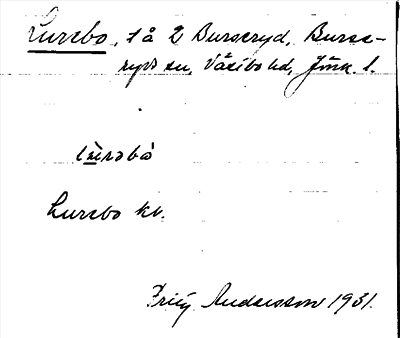 Lurebo, 1 å 2 Burseryd, Burse-
ryds sn, Västbo hd, Jönk. l.
Lurebo kv.
Fritz Andersson 1931.